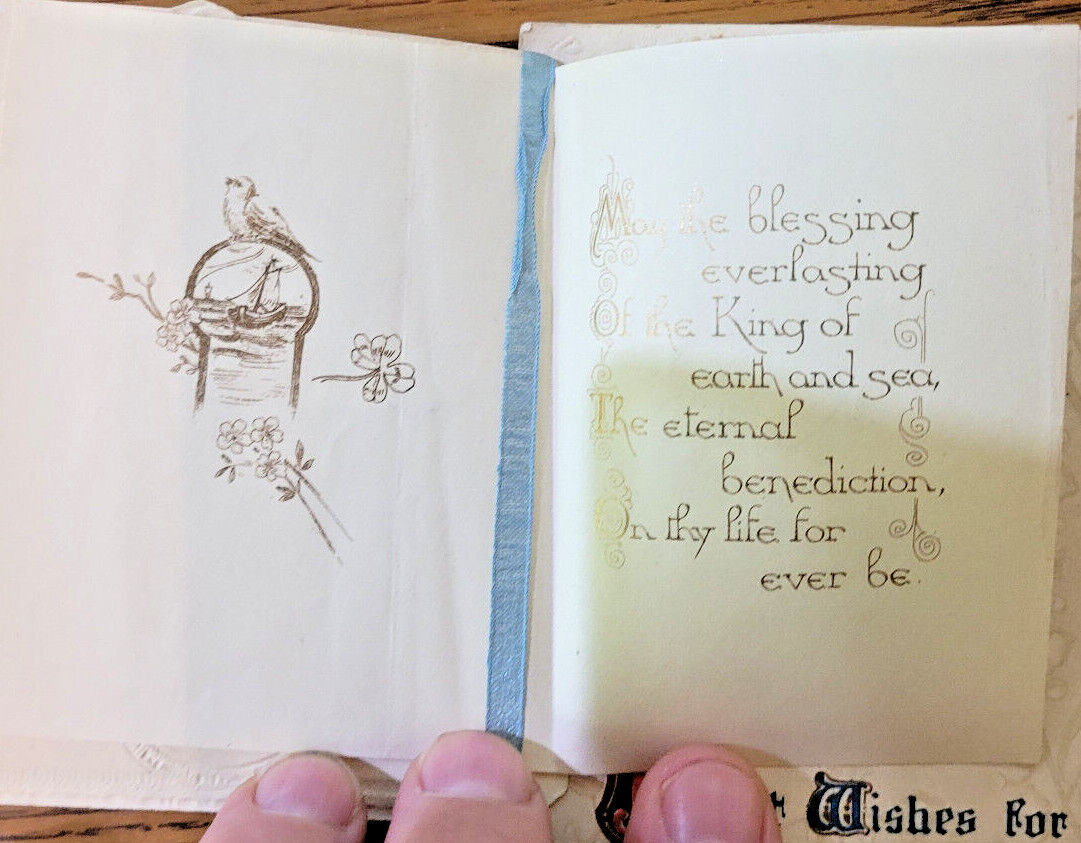 May the blessing
everlasting
Of the King of
earth and sea,
The eternal
benediction,
On thy life for
ever be.
Wishes For